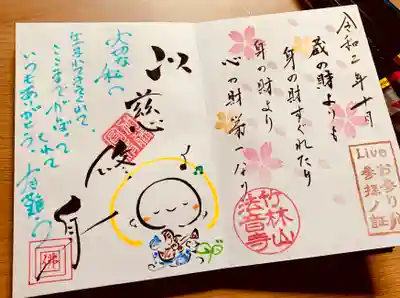 令和二年十月
蔵の財よりも
身の財すぐれたり
身の財より
心の財第一なり
Liveお参り
参拝ノ証
竹林山
法音寺
以慈
修身
大切な私へ
生まれてきてくれて、
ここまでがんばって
くれて
いつもありがとう。
佛